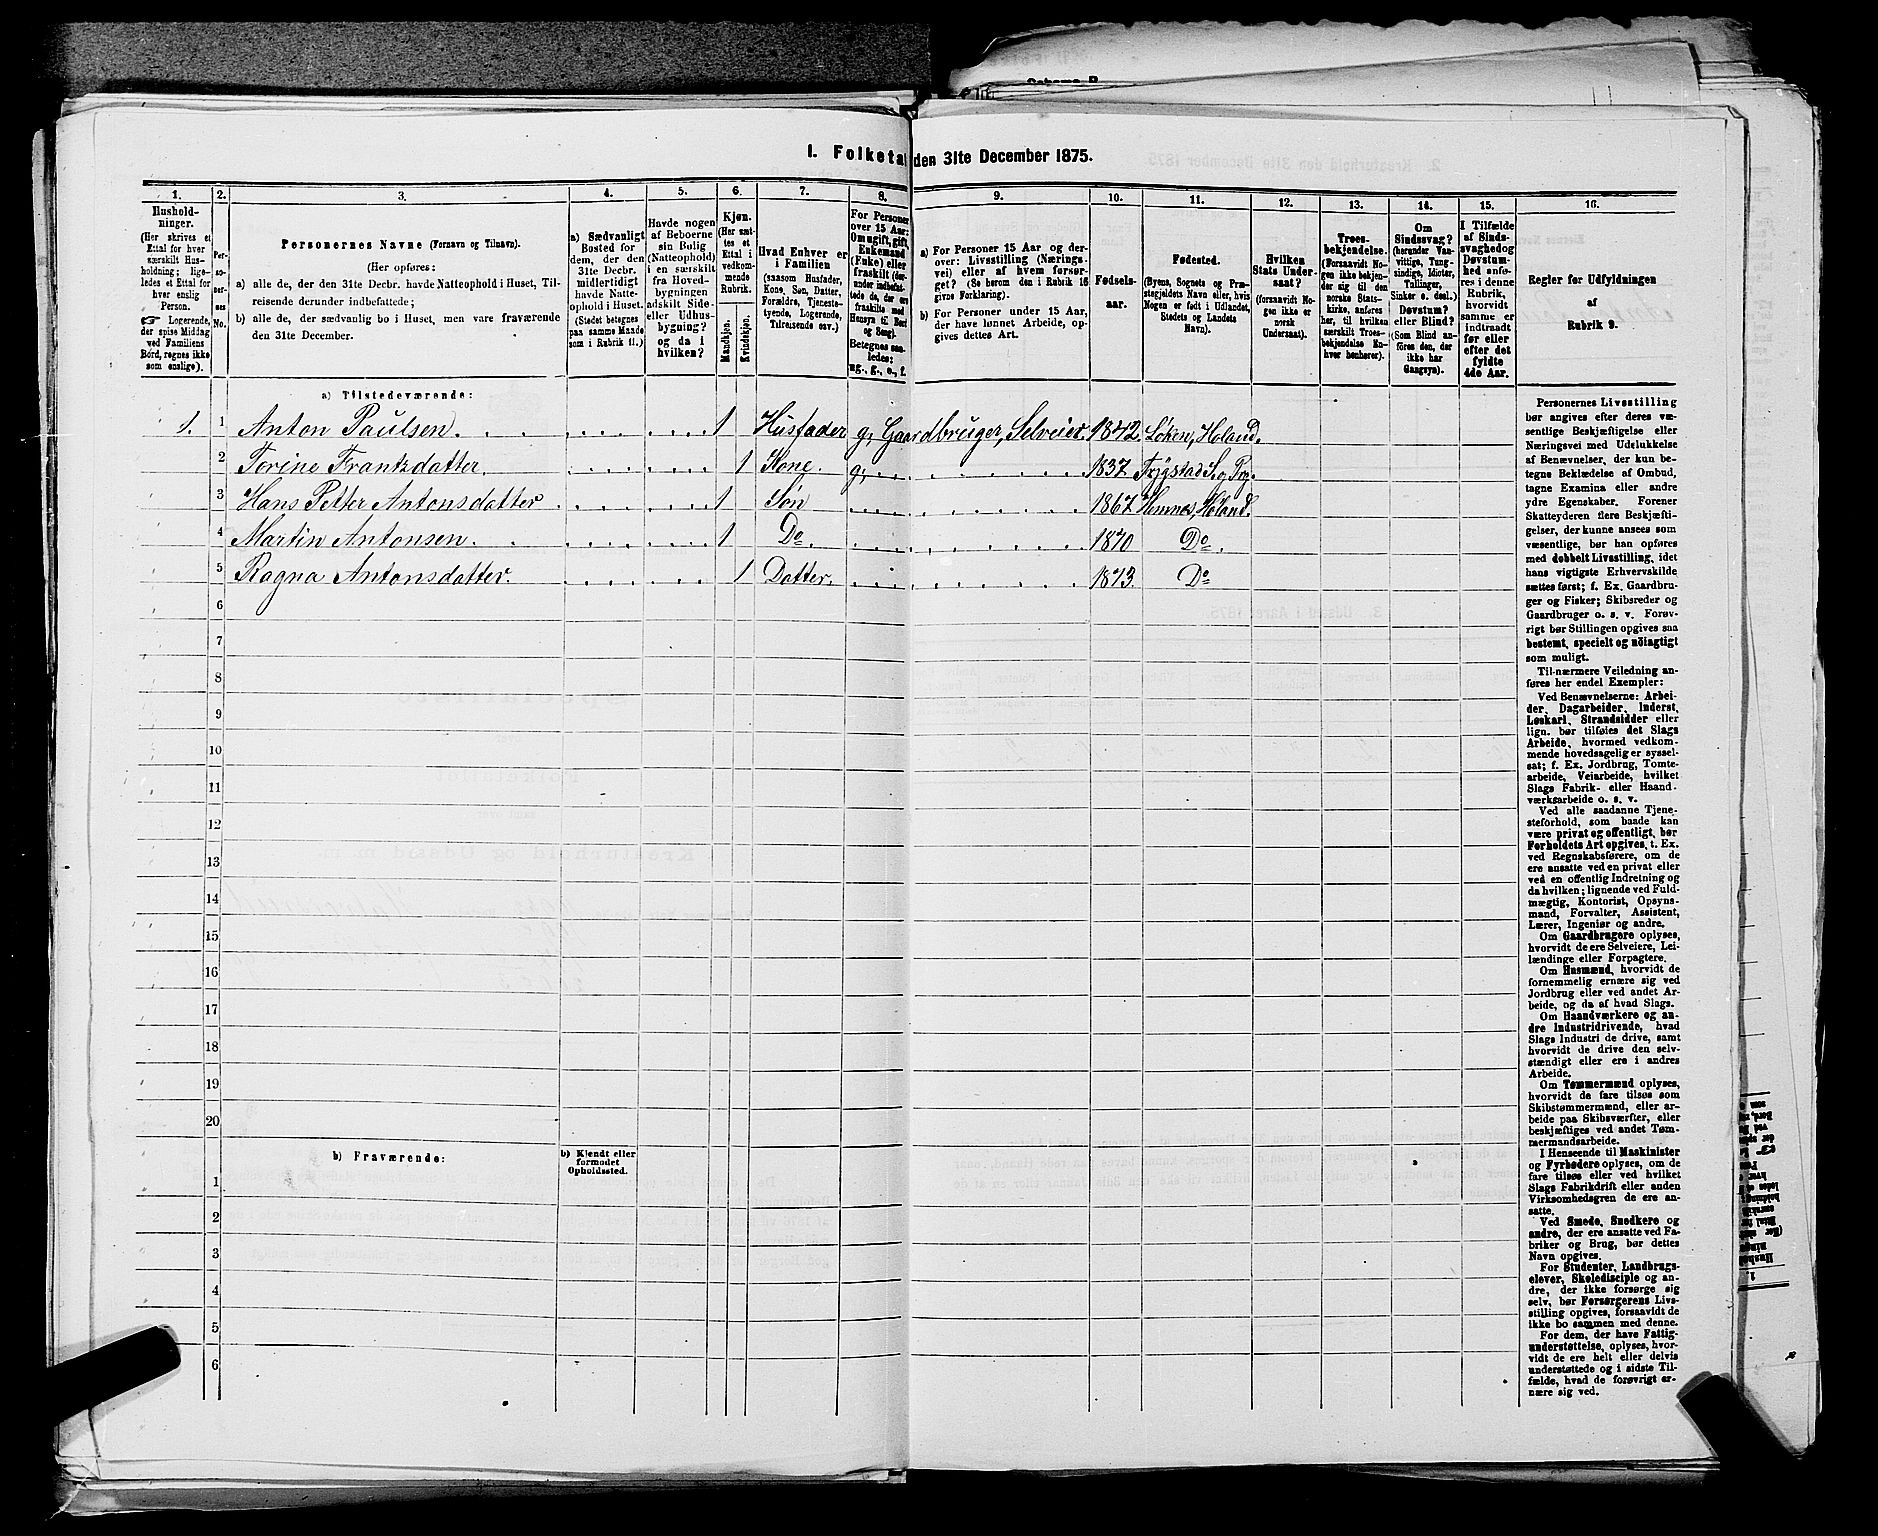 I. Folketal den 31te December 1875.
1.
Hushold-
ninger.
(Her skrives et
Ettal for hver
særskilt Hus-
holdning; lige-
ledes et Ettal for
hver enslig
Person.
☞ Logerende,
der spise Middag
ved Familiens
Bord, regnes ikke
som enslige).
2.
Per-
so-
ner-
nes
No.
3.
Personernes Navne (Fornavn og Tilnavn).
(Her opføres:
a) alle de, der den 31te Decbr. havde Natteophold i Huset, Til-
reisende derunder indbefattede;
b) alle de, der sædvanlig bo i Huset, men vare fraværende
den 31te December.
4.
a) Sædvanligt
Bosted for
dem, der den
31te Decbr.
midlertidigt
havde Natte-
ophold i Huset.
(Stedet betegnes
paa samme Maade
som i Rubrik 11.)
5.
Havde nogen
af Beboerne
sin Bolig
(Natteophold)
i en særskilt
fra Hoved-
bygningen
adskilt Side-
eller Udhus-
bygning?
og da i
hvilken?
6.
Kjøn.
(Her sæt-
tes et
Ettal i
vedkom-
mende
Rubrik.
Mandkjøn.
Kvindekjøn.
7.
Hvad Enhver er
i Familien
(saasom Husfader,
Kone, Søn, Datter,
Forældre, Tjeneste-
tyende, Logerende,
Tilreisende osv.)
8.
For Personer
over 15 Aar:
Om ugift, gift,
Enkemand
(Enke) eller
fraskilt (der-
under indbefat-
tede de, der ere
fraskilte med
Hensyn til Bord
og Seng).
Betegnes saa-
ledes:
ug., g., e., f.
9.
a) For Personer 15 Aar og der-
over: Livsstilling (Nærings-
vei) eller af hvem forsør-
get? (Se herom den i Rubrik 16
givne Forklaring).
b) For Personer under 15 Aar,
der have lønnet Arbeide, op-
gives dettes Art.
10.
Fødsels-
aar.
11.
Fødested.
(Byens, Sognets og Præ-
stegjeldets Navn eller, hvis
Nogen er født i Udlandet,
Stedets og Landets
Navn).
12.
Hvilken
Stats Under-
saat?
(forsaavidt No-
gen ikke er
norsk
Undersaat).
13.
Troes-
bekjendelse.
(Forsaavidt No-
gen ikke bekjen-
der sig til den
norske Stats-
kirke, anføres
her, til hvilken
særskilt Troes-
bekjendelse En-
hver henhører).
14.
Om
Sindssvag?
(herunder Van-
vittige, Tung-
sindige, Idioter,
Tullinger,
Sinker o. desl.)
Døvstum?
eller Blind?
(Som Blind an-
føres den, der
ikke har
Gangsyn).
15.
I Tilfælde
af Sinds-
svaghed og
Døvstum-
hed anfø-
res i denne
Rubrik,
hvorvidt
samme er
indtraadt
før eller
efter det
fyldte
4de Aar.
16.
Regler for Udfyldningen
af
Rubrik 9.
a) Tilstedeværende:
1. 1 Anton Paulsen. 1 Husfader g, Gaardbruger, Selveier. 1842. Løken, Høland.
2 Torine Frantzdatter. 1 Kone. g, 1837 Trygstad S. og Pg.
3 Hans Petter Antonsdatter 1 Søn 1867 Hemnes, Høland.
4 Martin Antonsen. 1 Do. 1870 Do.
5 Ragna Antonsdatter. 1 Datter. 1873. Do
6
7
8
9
10
11
12
13
14
15
16
17
18
19
20
b) Fraværende:
b) Kjendt eller
formodet
Opholdssted.
1
2
3
4
5
6
Personernes Livsstilling
bør angives efter deres væ-
sentlige Beskjæftigelse eller
Næringsvei med Udelukkelse
af Benævnelser, der kun be-
tegne Beklædelse af Ombud,
tagne Examina eller andre
ydre Egenskaber. Forener
Skatteyderen flere Beskjæfti-
gelser, der kunne ansees som
væsentlige, bør han opføres
med dobbelt Livsstilling, idet
hans vigtigste Erhvervskilde
sættes først; f. Ex. Gaardbru-
ger og Fisker; Skibsreder og
Gaardbruger o. s. v. Forøv-
rigt bør Stillingen opgives saa
bestemt, specielt og nöiagtigt
som muligt.
Til nærmere Veiledning an-
føres her endel Exempler:
Ved Benævnelserne: Arbei-
der, Dagarbeider, Inderst,
Løskarl, Strandsidder eller
lign. bør tilføies det Slags
Arbeide, hvormed vedkom-
mende hovedsagelig er syssel-
sat; f. Ex. Jordbrug, Tomte-
arbeide, Veiarbeide, hvilket
Slags Fabrik- eller Haand-
værksarbeide o. s. v.
Ved alle saadanne Tjene-
steforhold, som baade kan
være privat og offentligt, bør
Forholdets Art opgives, t. Ex.
ved Regnskabsførere, om de
ere ansatte ved en privat eller
ved en offentlig Indretning og
da hvilken; lignende ved Fuld-
mægtig, Kontorist, Opsyns-
mand, Forvalter, Assistent,
Lærer, Ingeniør og andre.
Om Gaardbrugere oplyses,
hvorvidt de ere Selveiere, Lei-
lændinge eller Forpagtere.
Om Husmænd, hvorvidt de
fornemmelig ernære sig ved
Jordbrug eller ved andet Ar-
beide, og da af hvad Slags.
Om Haandværkere og an-
dre Industridrivende, hvad
Slags Industri de drive, samt
hvorvidt de drive den selv-
stændigt eller ere i andres
Arbeide.
Om Tømmermænd oplyses,
hvorvidt de fare tilsøs som
Skibstømmermænd, eller ar-
beide paa Skibsværfter, eller
beskjæftiges ved andet Tøm-
mermandsarbeide.
I Henseende til Maskinister
og Fyrbødere oplyses, om de
fare tilsøs eller ved hvilket
Slags Fabrikdrift eller anden
Virksomhedsgren de ere an-
satte.
Ved Smede, Snedkere og
andre, der ere ansatte ved Fa-
briker og Brug, bør dettes
Navn opgives.
For Studenter, Landbrugs-
elever, Skoledisciple og an-
dre, der ikke forsørge sig
selv, bør Forsørgerens Livs-
stilling opgives, forsaavidt de
ikke bo sammen med denne.
For dem, der have Fattig-
understøttelse, oplyses, hvor-
vidt de ere helt eller delvis
understøttede og i sidste Til-
fælde, hvad de forøvrigt er-
nære sig ved.